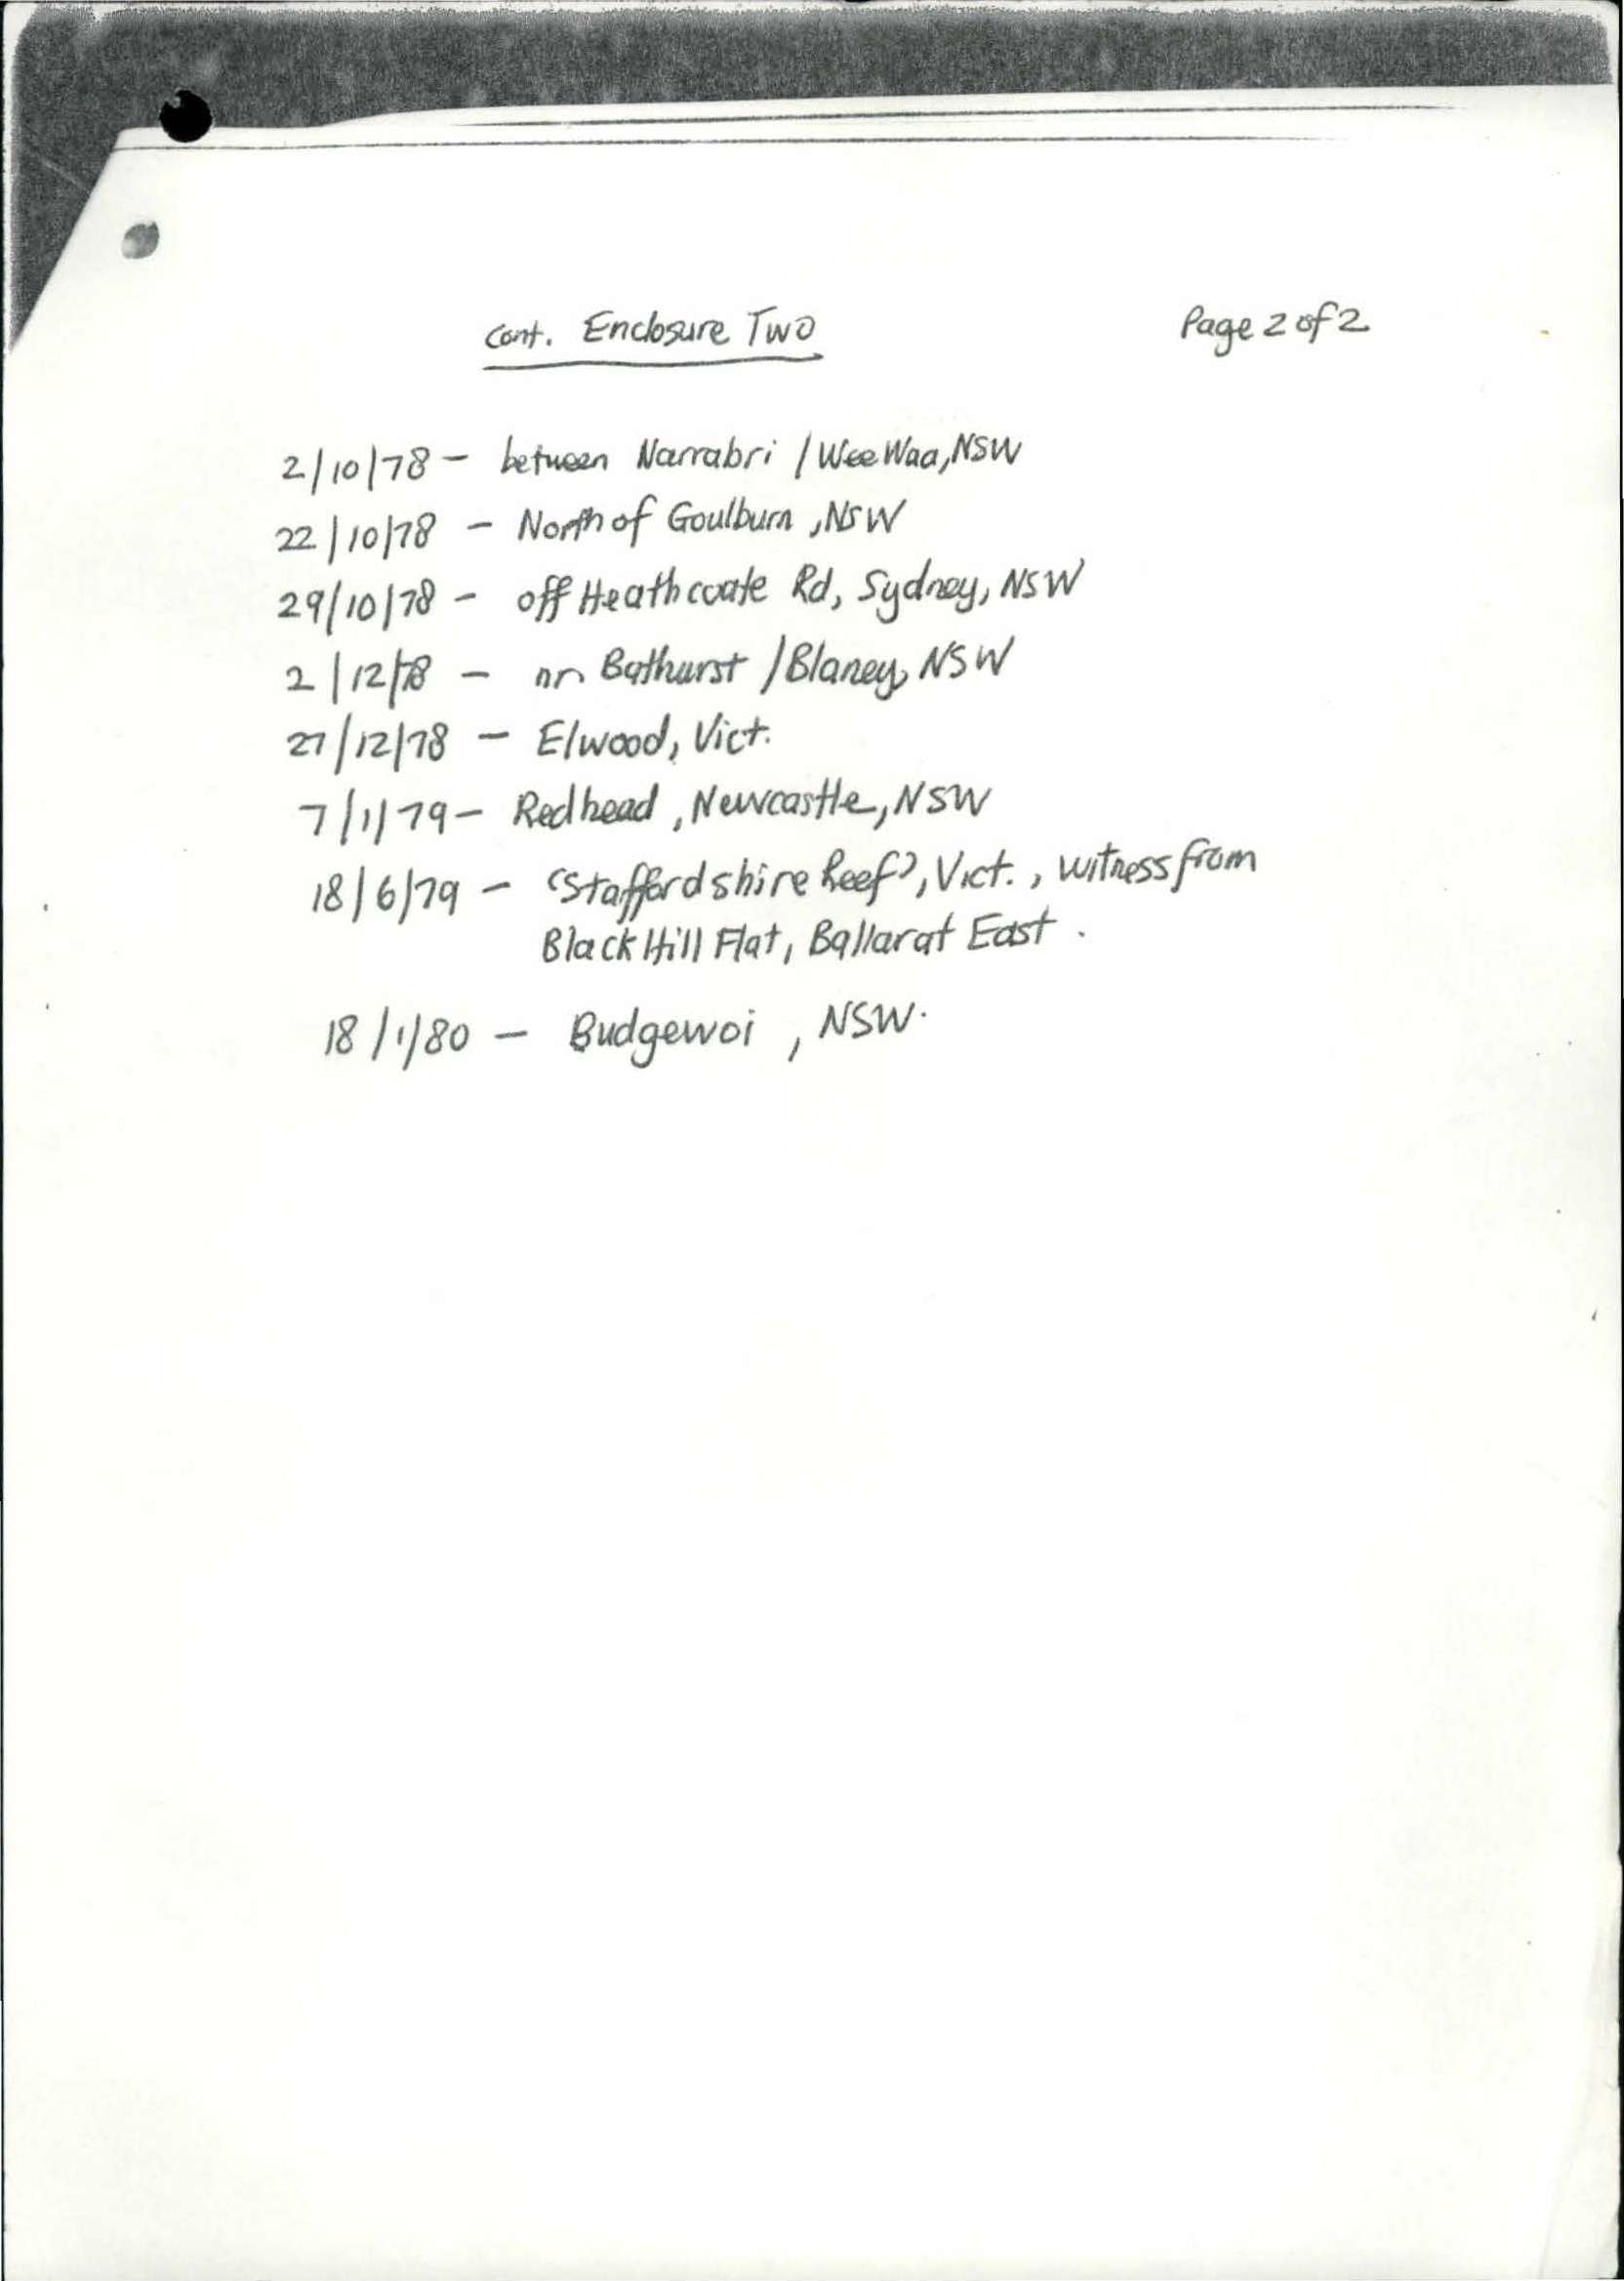 cont. Enclosure Two
Page 2 of 2
2/10/78 - between Narrabri / Wee Waa, NSW
22/10/78 - North of Goulburn, NSW
29/10/78 - off Heathcoate Rd, Sydney, NSW
2/12/78 - nr Bathurst / Blaney, NSW
27/12/78 - Elwood, Vict.
7/1/79 - Redhead, Newcastle, NSW
18/6/79 - 'Staffordshire Reef', Vict., witness from
Black Hill Flat, Ballarat East.
18/1/80 - Budgewoi, NSW.